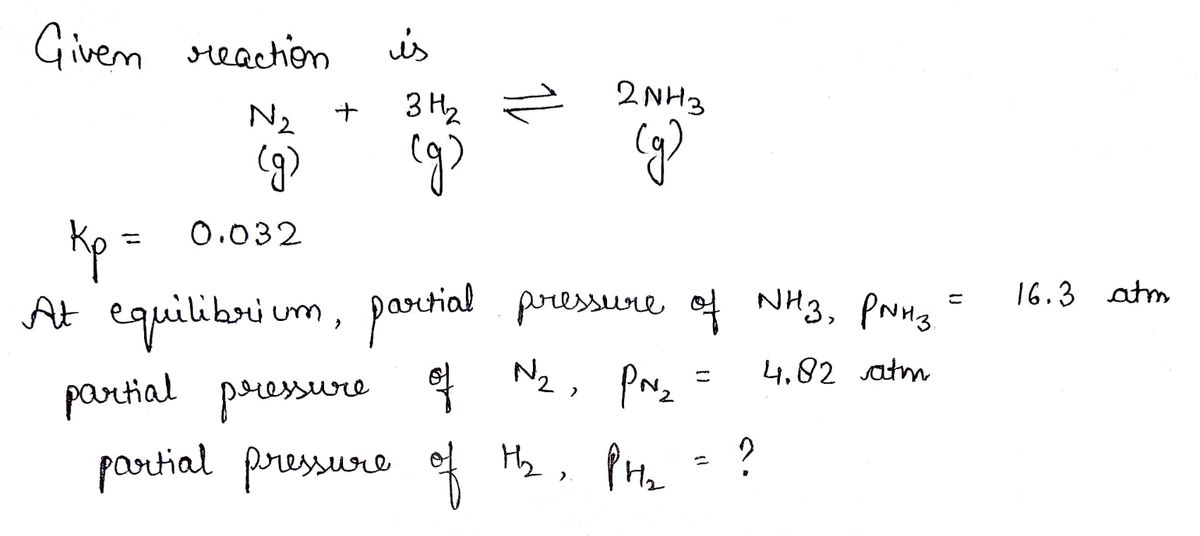 Given reaction is
N₂ + 3H₂ ⇌ 2NH₃
(g) (g) (g)
Kp = 0.032
At equilibrium, partial pressure of NH₃, PNH₃ = 16.3 atm
partial pressure of N₂, PN₂ = 4.82 atm
partial pressure of H₂, PH₂ = ?